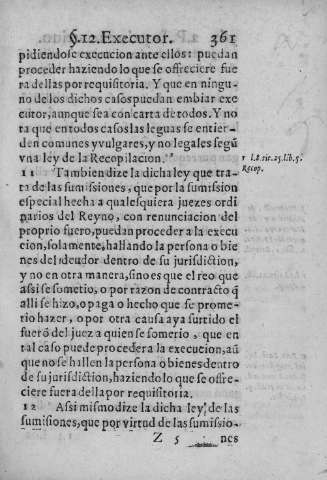 §.12. Executor. 361
pidiendose execucion ante ellos: puedan
proceder haziendo lo que se offreciere fue
ra dellas por requisitoria. Y que en ningu-
no de los dichos casos puedan embiar exe
cutor, aunque sea con carta de todos. Y no
ta que en todos casos las leguas se entien-
den comunes y vulgares, y no legales segũ
vna ley de la Recopilacion.
1 l.8. tit. 25. lib. 5.
Recop.
11 Tambien dize la dicha ley que tra-
ta de las sumissiones, que por la sumission
especial hecha a qualesquiera juezes ordi
narios del Reyno, con renunciacion del
proprio fuero, puedan proceder a la execu
cion, solamente, hallando la persona o bie
nes del deudor dentro de su jurisdiction,
y no en otra manera, sino es que el reo que
assi se sometio, o por razon de contracto q̃
alli se hizo, o paga o hecho que se prome-
tio hazer, o por otra causa aya surtido el
fuero del juez a quien se somerio, que en
tal caso puede procedera la execucion, aũ
que no se hallen la persona o bienes dentro
de su jurisdiction, haziendo lo que se offre-
ciere fuera della por requisitoria.
12 Assi mismo dize la dicha ley, de las
sumisiones, que por virtud de las sumissio-
Z 5 nes